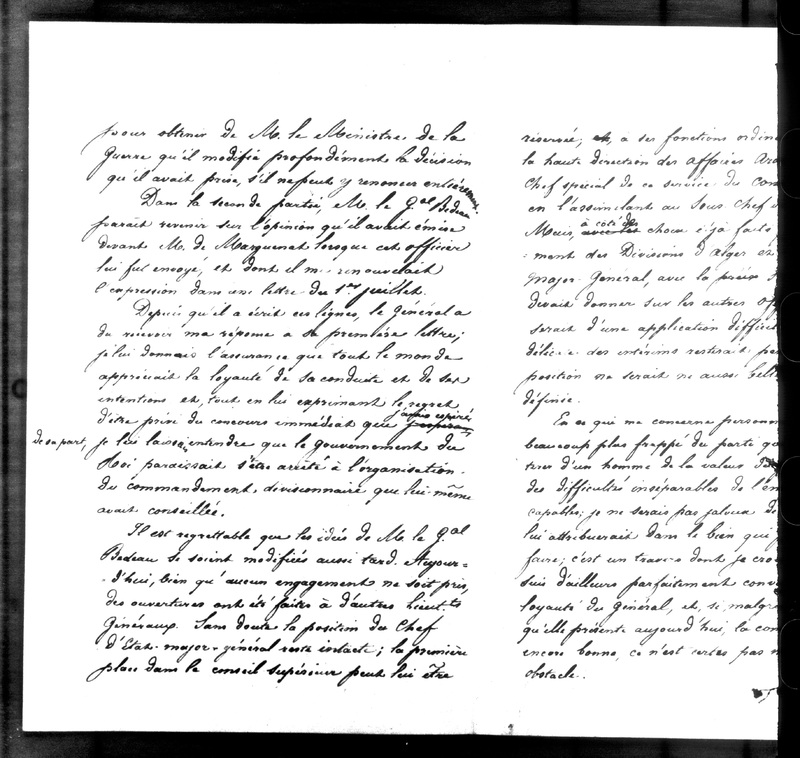 pour obtenir de M. le Ministre de la
Guerre qu'il modifie profondément la décision
qu'il avait prise, s'il ne peut y renoncer entièrement.
Dans la seconde partie, M. le Gal Bedeau
paraît revenir sur l'opinion qu'il avait émise
devant M. de Marguenat lorsque cet officier
lui fut envoyé, et dont il me renouvelait
l'expression dans une lettre du 1er juillet.
Depuis qu'il a écrit ces lignes, le Général a
du recevoir ma réponse a sa première lettre;
je lui donnais l'assurance que tout le monde
appréciait la loyauté de sa conduite et de ses
intentions et, tout en lui exprimant le regret
d'être privé du concours immédiat que j'avais espéré
de sa part, je lui laissai entendre que le gouvernement du
Roi paraissait s'être arrêté à l'organisation
du commandement divisionnaire que lui-même
avait conseillée.
Il est regrettable que les idées de M. le Gal
Bedeau se soient modifiées aussi tard. Aujour=
-d'hui, bien qu'aucun engagement ne soit pris,
des ouvertures ont été faites à d'autres Lieut.ts
Généraux. Sans doute la position du Chef
d'Etat-major-général reste intacte; la première
place dans le conseil supérieur peut lui être
réservée; a ses fonctions ordin
la haute direction des affaires ara
Chef spécial de ce service du con
en l'assimilant au Sous Chef
Mais, à côté de chose déjà faite,
=ment des Divisions d'Alger
major-Général, avec la
devait donner sur les autres
serait d'une application difficil
délicate des intérims resterait
position ne serait ne aussi bell
définie.
En ce qui me concerne personn
beaucoup plus frappé du parti qu
tirer d'un homme de la valeur
des difficultés inséparables de l'en
capables; je ne serais pas jaloux de
lui attribuerait dans le bien qui
faire; c'est un travers dont je croi
suis d'ailleurs parfaitement conv
loyauté du Général, et, si malgré
qu'elle présente aujourd'hui, la con
encore bonne, ce n'est certes pas
obstacle.